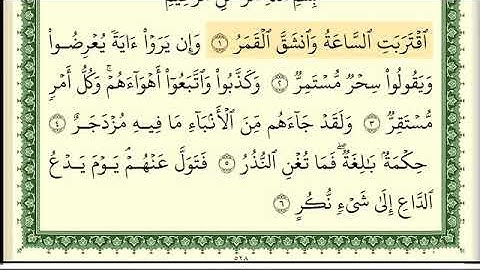 بِسْمِ ٱللَّهِ ٱلرَّحْمَٰنِ ٱلرَّحِيمِ
ٱقْتَرَبَتِ ٱلسَّاعَةُ وَٱنشَقَّ ٱلْقَمَرُ ١ وَإِن يَرَوْا۟ ءَايَةً يُعْرِضُوا۟
وَيَقُولُوا۟ سِحْرٌ مُّسْتَمِرٌّ ٢ وَكَذَّبُوا۟ وَٱتَّبَعُوٓا۟ أَهْوَآءَهُمْ ۚ وَكُلُّ أَمْرٍ
مُّسْتَقِرٌّ ٣ وَلَقَدْ جَآءَهُم مِّنَ ٱلْأَنۢبَآءِ مَا فِيهِ مُزْدَجَرٌ ٤
حِكْمَةٌۢ بَٰلِغَةٌ ۖ فَمَا تُغْنِ ٱلنُّذُرُ ٥ فَتَوَلَّ عَنْهُمْ ۘ يَوْمَ يَدْعُ
ٱلدَّاعِ إِلَىٰ شَىْءٍ نُّكُرٍ ٦
٥٢٨